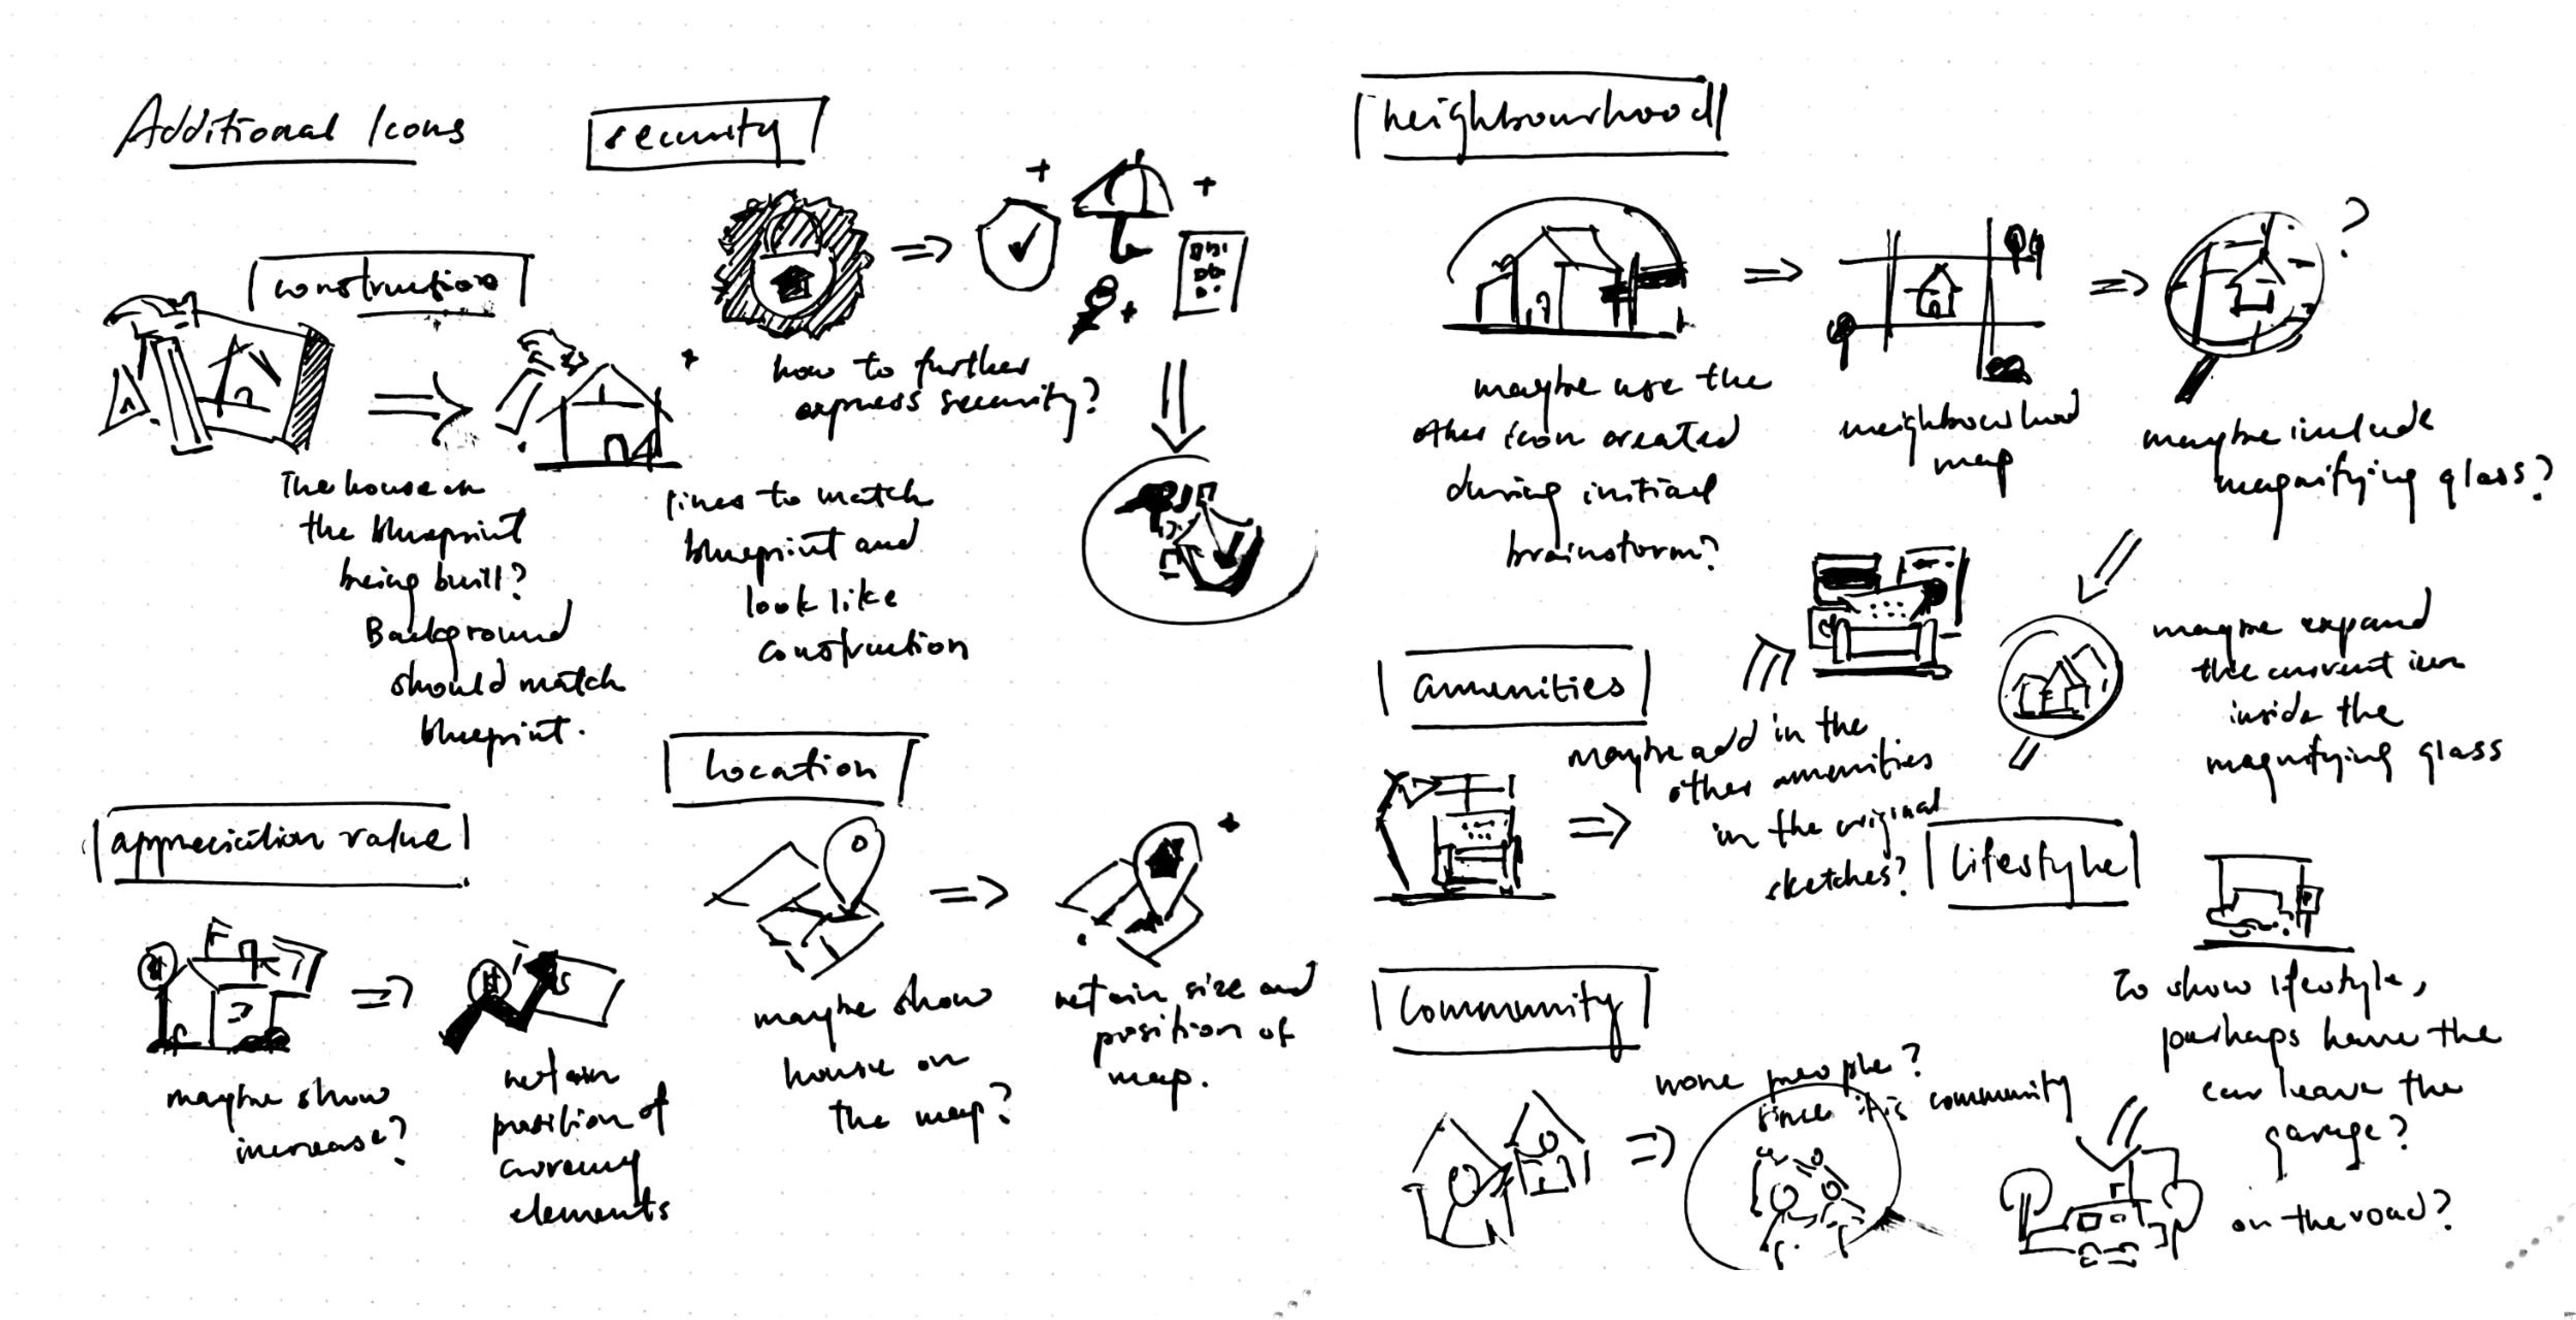 Additional Icons
security
construction
how to further
express security?
The house in
the blueprint
being built?
Background
should match
blueprint.
lines to match
blueprint and
look like
construction
appreciation value
maybe show
increase?
retain
position of
currency
elements
location
maybe show
house on
the map?
retain size and
position of
map.
neighbourhood
maybe use the
other icon created
during initial
brainstorm?
neighbourhood
map
?
maybe include
magnifying glass?
maybe expand
the current icon
inside the
magnifying glass
amenities
maybe add in the
other amenities
in the original
sketches?
lifestyle
To show lifestyle,
perhaps have the
car leave the
garage?
on the road?
community
more people?
since it is community